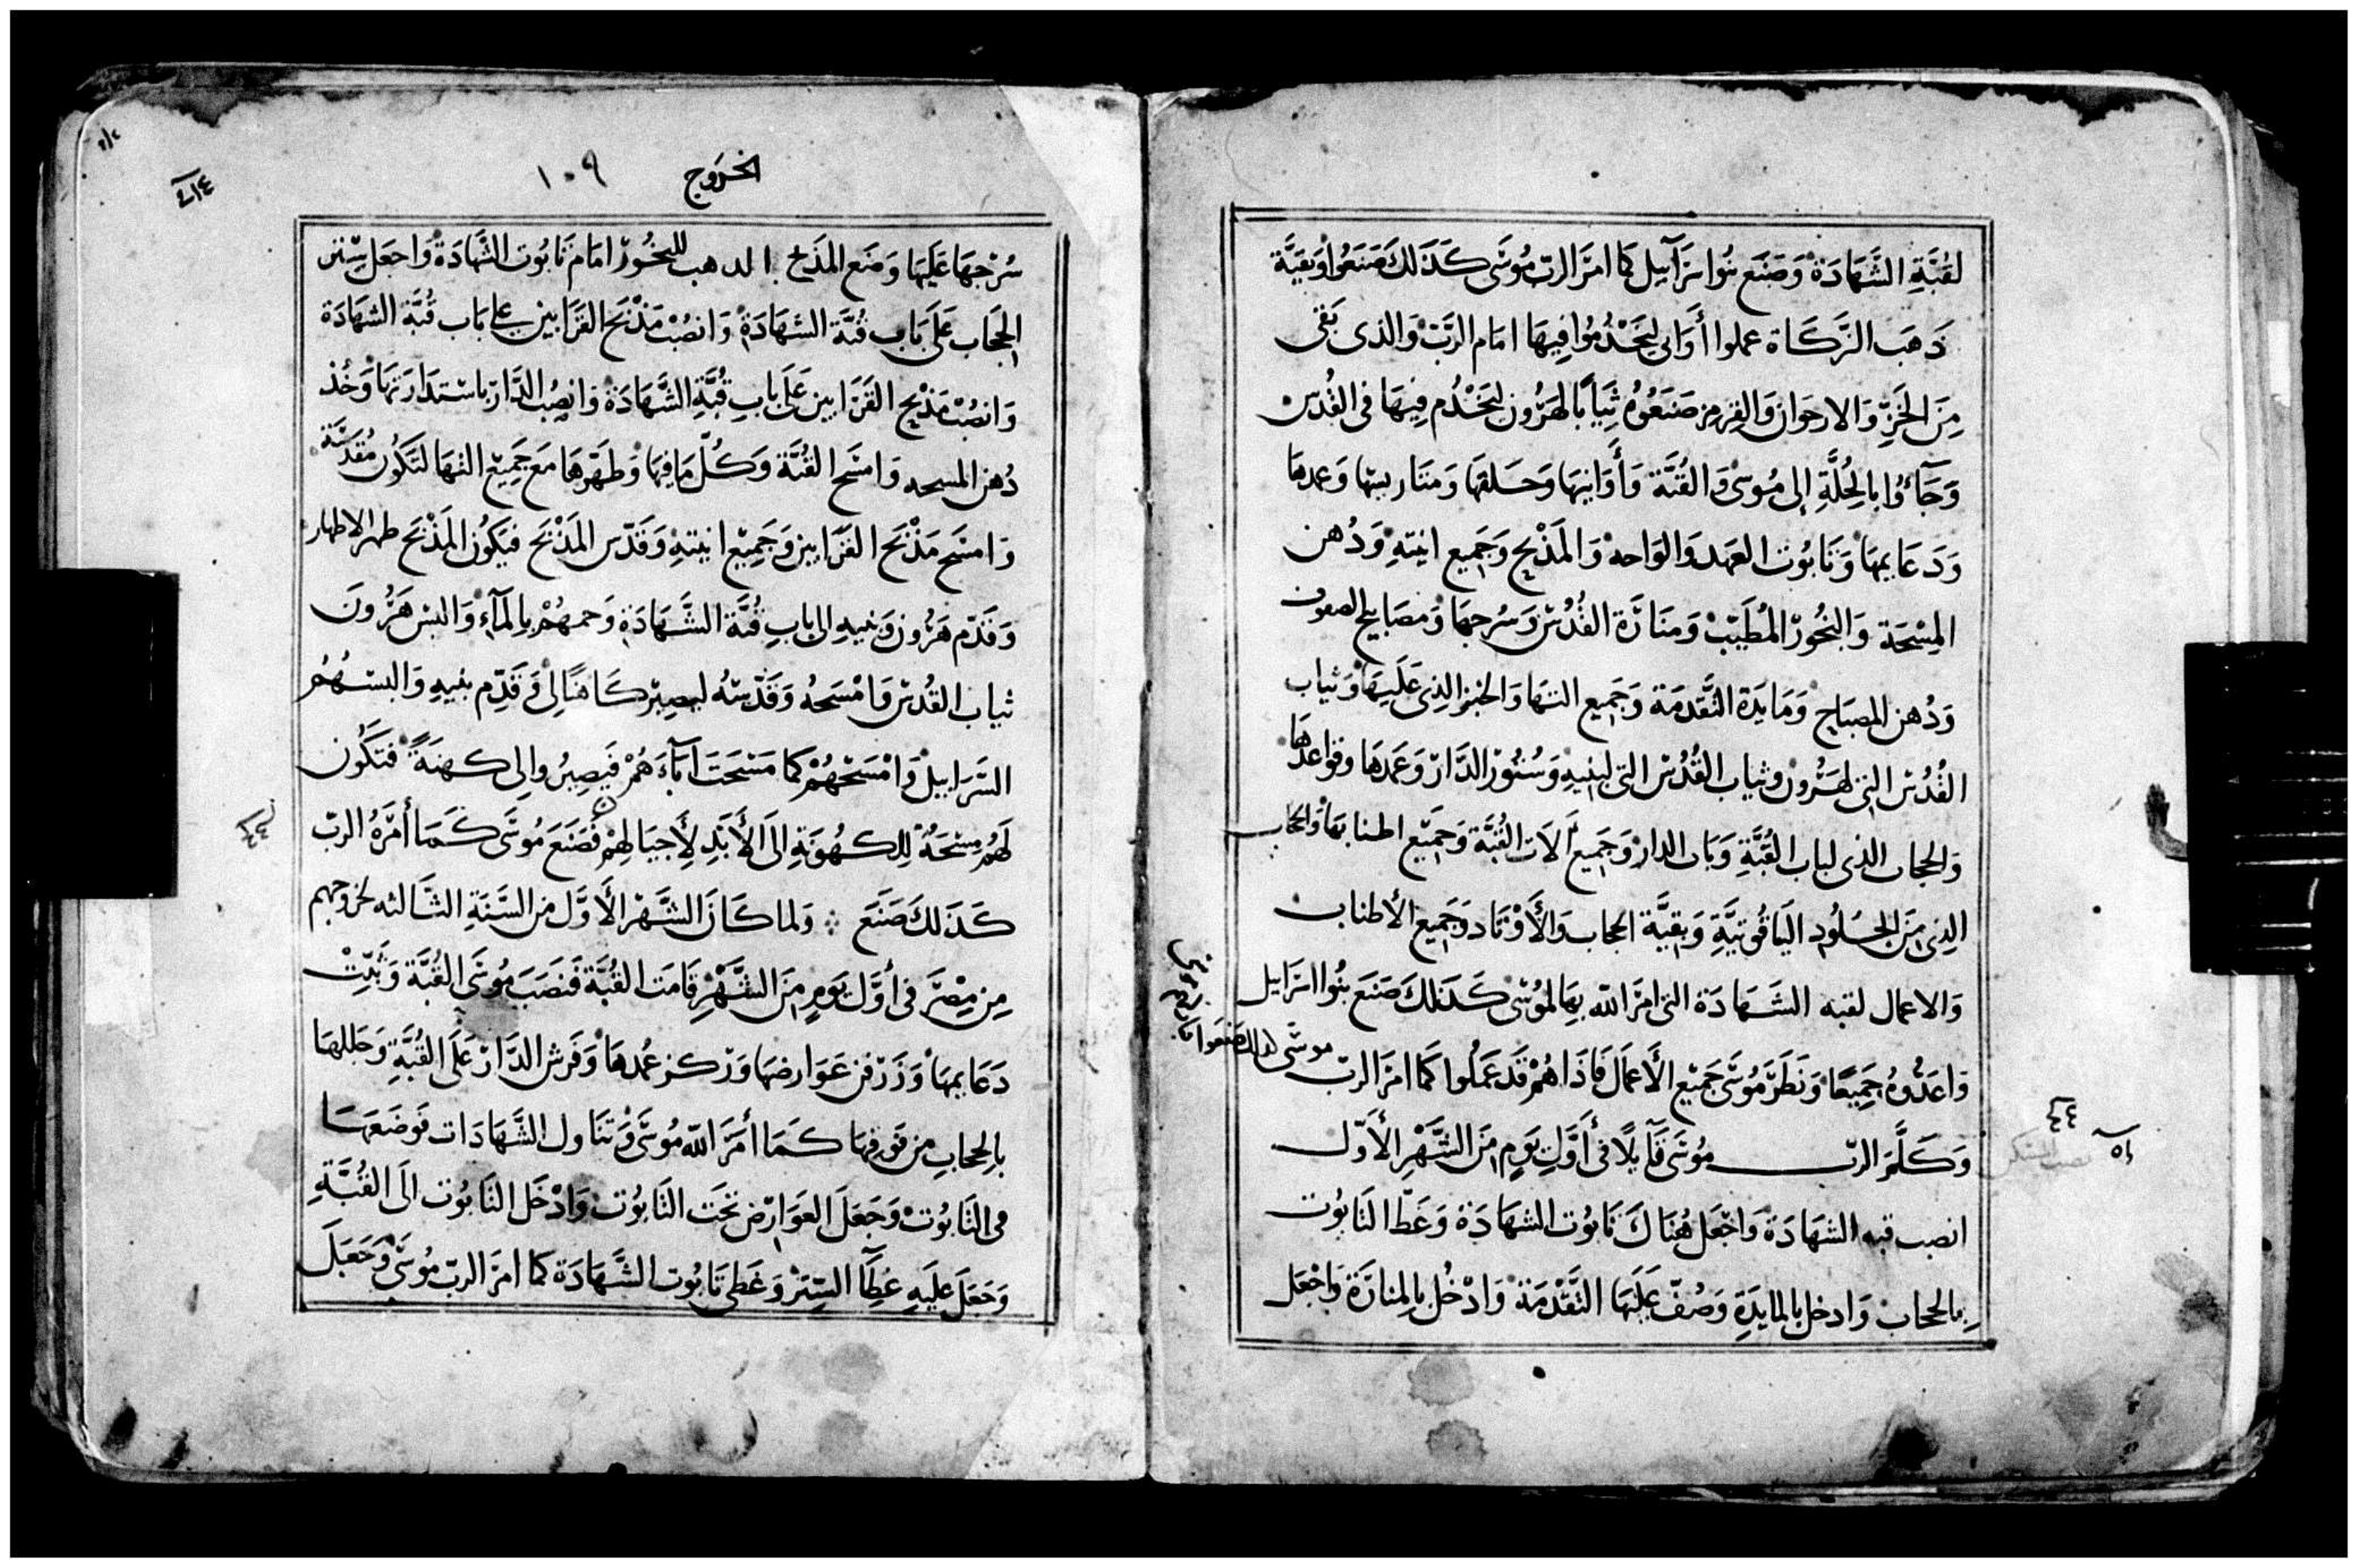 لقُبَّةِ الشَّهَادَة وَصَنَع بَنُوا سرَآيل كما امَر الرب مُوسَى كَذَلكَ صَنَعُوا وَبقيَّة
ذَهَب الزَّكَاة عملوا أَوَاني ليَخْدمُوا فِيهَا امَام الرَّبّ وَالذى بَقى
مِنَ الخَزِّ وَالارجَوَان وَالقِرمِز صَنَعُوهُ ثِيَاباً لهَرُون ليَخْدُم فِيهَا فى القُدسْ
وَجَآءُوا بالحُلَّةِ إلى مُوسَى وَالقُبَّة وَأَوَانيهَا وَحَلقهَا وَمتَاريسهَا وَعمدهَا
وَدَعَايمهَا وَتَابُوت العَهد وَالوَاحهُ وَالمَذْبح وَجَميع انيَتهِ وَدُهن
المِسْحَة وَالبَخُورْ المُطَيّبْ وَمنَارَة القُدْسْ وَسُرجهَا وَمصَابيح الصفوف
وَدُهن المِصبَاح وَمَايدَة التَّقدمَة وَجَميع التهَا وَالخبز الذِى عَلَيهَا وَثياب
القُدْسْ التى لهَرُون وثياب القُدْسْ التى لبنيهِ وَسُتُورْ الدَّارْ وَعَمدهَا وقواعدهَا
وَالحجاب الذى لباب القُبَّةِ وَبَاب الدارْ وَجَميع آلاَت القُبَّة وَجَميْع اطنابهَا وَالحجاب
الذِى مِنَ الجُلُودِ اليَاقُوتيَّةِ وَبقيَّة الحجاب وَالأَوْتَاد وَجَميع الأطناب
وَالاعمال لقبه الشَهَادَة التى امَر اللّه بِهَا لمُوسَى كَذَلكَ صَنَع بنُوا اسرَايل
وَاعَدُّوهُ جَميعًا وَنَظَر مُوسَى جَميْع الأَعمَال فَاذَا هُمْ قَد عَملُوا كمَا امَر الربّ
موسَى كذالك صنعوا
وَكَلَّم الربّ مُوسَى قَآيلاً فى أَوَّلِ يَومٍ مِنَ الشَّهْرِ الأَوَّل
انصب قبه الشهَادَة وَاجْعَل هُنَاكَ تَابُوت الشهَادَة وَغَطّ التَابُوت
بِالحجاب وَادخل بالمايدَةِ وَصُفّ عَلَيهَا التَّقْدمَة وَادْخُل بِالمنارَة وَاجْعَل
الخرُوج ١٠٩
سُرْجهَا عَلَيهَا وَضَع المذبَح الذهب للبخُورْ امَام تَابُوت الشّهَادَة وَاجعَل سِتر
الحجَاب عَلَى بَاب قُبَّة الشهَادَة وَانصُبْ مَذْبَح القرَابين على بَاب قُبَّة الشهَادَة
وَانصُبْ مَذْبح القرَابين عَلَى بابِ قُبَّةِ الشَّهَادَة وَانصِب الدَّارْ باسْتدَارَتهَا وَخُذ
دُهن المسحه وَامسَح القُبَّة وَكلّ مَا فِيهَا وَطَهّرهَا مَع جَميْع التهَا لتكُون مُقدسَّة
وَامسَح مَذْبَح القرَابين وَجَميْع انيتهِ وَقَدّس المَذْبَح فيَكُون المَذْبَح طهر الاطهار
وَقَدّم هَرُون وَبنيهِ الى بابِ قُبَّة الشَّهَادَةِ وَحمهُمْ بالمآء وَالبسْ هَرُّونَ
ثياب القُدسْ وَامْسَحهُ وَقَدّسْهُ ليصيْر كَاهنًا لى وَقَدّم بنيهِ وَالبسْهُمْ
السَّرَابيل وَامْسَحْهُمْ كما مَسَحَت آبآءَهُمْ فَيَصِيرُوا لى كهنَةً فتَكُون
لَهُمْ مِسْحَةٌ لِلكهُونَةِ الَى الأَبَدِ لأَجيَالهِمْ فَصَنَع مُوسَى كَمَا أَمَرَهُ الربّ
كَذَلكَ صَنَع ولما كَانَ الشَّهْر الأَوَّل مِن السَّنَةِ الثَّالثه لخروجهم
مِن مِصْرَ فى أَوَّل يَومٍ مِنَ الشَّهْرِ قَامَت القُبَّة فَنَصَبَ مُوسَى القُبَّة وَثَبّتْ
دَعَايمهَا وَزَرْفن عَوَارضهَا وَرْكز عُمدهَا وَفَرَش الدَّارْ عَلَى القُبَّةِ وَجَللهَا
بالحجَابِ مِن فَوقهَا كَمَا أَمَرَ اللّه مُوسَى وَتنَاول الشَّهَادَات فوَضَعَهَا
فى التَابُوتْ وَجَعَلَ العَوَارِض تَحَت التَابُوت وَادْخَل التَابُوت الَى القُبَّةِ
وَجَعَل عَلَيهِ غطَآ السِّترْ وَغَطى تَابُوت الشَّهَادَة كما امَر الربّ مُوسَى وَجَعَلَ